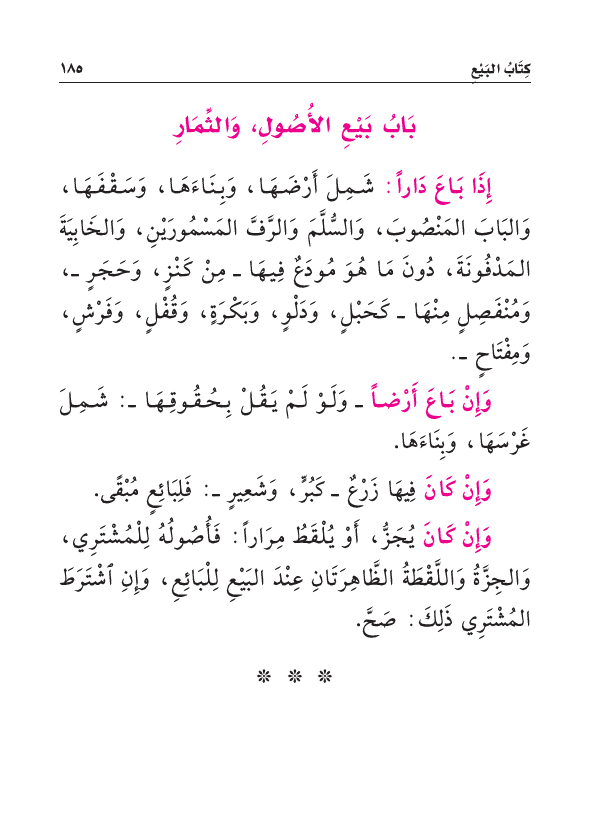 كِتَابُ البَيْعِ ١٨٥
بَابُ بَيْعِ الأُصُولِ، وَالثِّمَارِ
إِذَا بَاعَ دَاراً: شَمِلَ أَرْضَهَا، وَبِنَاءَهَا، وَسَقْفَهَا،
وَالبَابَ المَنْصُوبَ، وَالسُّلَّمَ وَالرَّفَّ المَسْمُورَيْنِ، وَالخَابِيَةَ
المَدْفُونَةَ، دُونَ مَا هُوَ مُودَعٌ فِيهَا ـ مِنْ كَنْزٍ، وَحَجَرٍ ـ،
وَمُنْفَصِلٍ مِنْهَا ـ كَحَبْلٍ، وَدَلْوٍ، وَبَكْرَةٍ، وَقُفْلٍ، وَفَرْشٍ،
وَمِفْتَاحٍ ـ.
وَإِنْ بَاعَ أَرْضاً ـ وَلَوْ لَمْ يَقُلْ بِحُقُوقِهَا ـ: شَمِلَ
غَرْسَهَا، وَبِنَاءَهَا.
وَإِنْ كَانَ فِيهَا زَرْعٌ ـ كَبُرٍّ، وَشَعِيرٍ ـ: فَلِبَائِعٍ مُبْقًى.
وَإِنْ كَانَ يُجَزُّ، أَوْ يُلْقَطُ مِرَاراً: فَأُصُولُهُ لِلْمُشْتَرِي،
وَالجِزَّةُ وَاللَّقْطَةُ الظَّاهِرَتَانِ عِنْدَ البَيْعِ لِلْبَائِعِ، وَإِنِ ٱشْتَرَطَ
المُشْتَرِي ذَلِكَ: صَحَّ.
❊ ❊ ❊